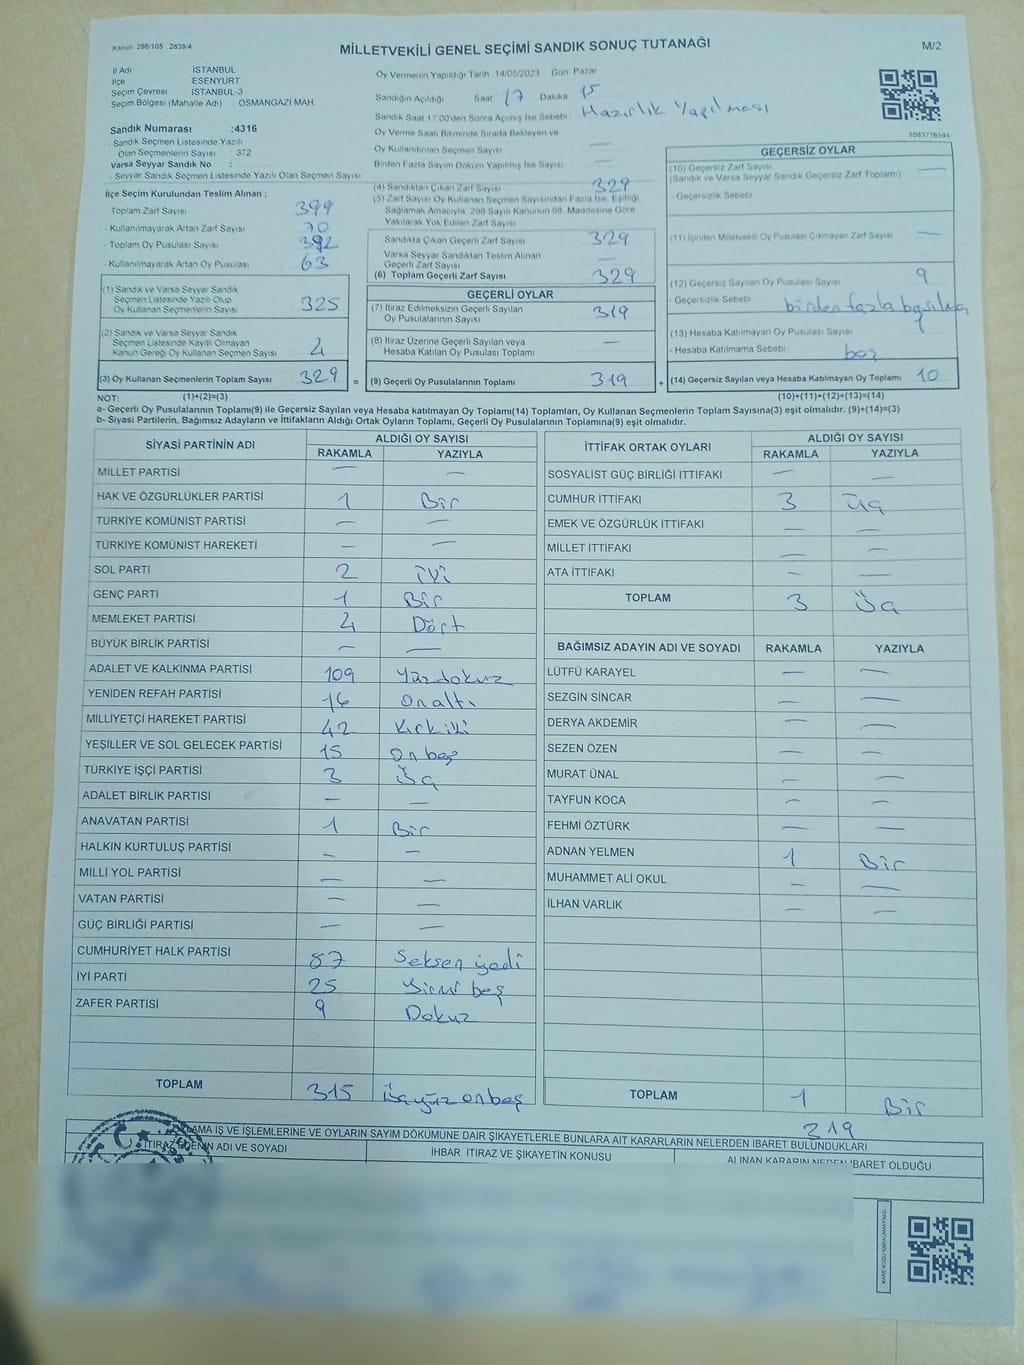 Kanun 298/105 . 2839/4
MİLLETVEKİLİ GENEL SEÇİMİ SANDIK SONUÇ TUTANAĞI
M/2
İl Adı İSTANBUL
İlçe ESENYURT
Seçim Çevresi İSTANBUL-3
Seçim Bölgesi (Mahalle Adı) : OSMANGAZİ MAH.
Sandık Numarası :4316
- Sandık Seçmen Listesinde Yazılı
Olan Seçmenlerin Sayısı : 372
Varsa Seyyar Sandık No :
- Seyyar Sandık Seçmen Listesinde Yazılı Olan Seçmen Sayısı
İlçe Seçim Kurulundan Teslim Alınan ;
- Toplam Zarf Sayısı 399
- Kullanılmayarak Artan Zarf Sayısı 70
- Toplam Oy Pusulası Sayısı 392
- Kullanılmayarak Artan Oy Pusulası 63
(1) Sandık ve Varsa Seyyar Sandık
Seçmen Listesinde Yazılı Olup
Oy Kullanan Seçmenlerin Sayısı 325
(2) Sandık ve Varsa Seyyar Sandık
Seçmen Listesinde Kayıtlı Olmayan
Kanun Gereği Oy Kullanan Seçmen Sayısı 4
(3) Oy Kullanan Seçmenlerin Toplam Sayısı 329
Oy Vermenin Yapıldığı Tarih :14/05/2023 Gün: Pazar
Sandığın Açıldığı Saat 17 Dakika 15
Sandık Saat 17:00'den Sonra Açımış İse Sebebi Hazırlık Yapılması
Oy Verme Saati Bitiminde Sırada Bekleyen ve
Oy Kullandırılan Seçmen Sayısı —
Birden Fazla Sayım Döküm Yapılmış İse Sayısı —
(4) Sandıktan Çıkan Zarf Sayısı 329
(5) Zarf Sayısı Oy Kullanan Seçmen Sayısından Fazla İse, Eşitliği
Sağlamak Amacıyla, 298 Sayılı Kanunun 98. Maddesine Göre
Yakılarak Yok Edilen Zarf Sayısı
Sandıkta Çıkan Geçerli Zarf Sayısı 329
Varsa Seyyar Sandıktan Teslim Alınan
Geçerli Zarf Sayısı —
(6) Toplam Geçerli Zarf Sayısı 329
GEÇERLİ OYLAR
(7) İtiraz Edilmeksizin Geçerli Sayılan
Oy Pusulalarının Sayısı 319
(8) İtiraz Üzerine Geçerli Sayılan veya
Hesaba Katılan Oy Pusulası Toplamı —
= (9) Geçerli Oy Pusulalarının Toplamı 319
1083776591
GEÇERSİZ OYLAR
(10) Geçersiz Zarf Sayısı —
(Sandık ve Varsa Seyyar Sandık Geçersiz Zarf Toplamı)
- Geçersizlik Sebebi
(11) İçinden Milletvekili Oy Pusulası Çıkmayan Zarf Sayısı —
(12) Geçersiz Sayılan Oy Pusulası Sayısı 9
- Geçersizlik Sebebi birden fazla
(13) Hesaba Katılmayan Oy Pusulası Sayısı 1
- Hesaba Katılmama Sebebi boş
+ (14) Geçersiz Sayılan veya Hesaba Katılmayan Oy Toplamı 10
NOT: (1)+(2)=(3) (10)+(11)+(12)+(13)=(14)
a- Geçerli Oy Pusulalarının Toplamı(9) ile Geçersiz Sayılan veya Hesaba katılmayan Oy Toplamı(14) Toplamları, Oy Kullanan Seçmenlerin Toplam Sayısına(3) eşit olmalıdır. (9)+(14)=(3)
b- Siyasi Partilerin, Bağımsız Adayların ve İttifakların Aldığı Ortak Oyların Toplamı, Geçerli Oy Pusulalarının Toplamına(9) eşit olmalıdır.
SİYASİ PARTİNİN ADI ALDIĞI OY SAYISI
RAKAMLA YAZIYLA
MİLLET PARTİSİ — —
HAK VE ÖZGÜRLÜKLER PARTİSİ 1 Bir
TÜRKİYE KOMÜNİST PARTİSİ — —
TÜRKİYE KOMÜNİST HAREKETİ — —
SOL PARTİ 2 iki
GENÇ PARTİ 1 Bir
MEMLEKET PARTİSİ 4 Dört
BÜYÜK BİRLİK PARTİSİ — —
ADALET VE KALKINMA PARTİSİ 109 Yüzdokuz
YENİDEN REFAH PARTİSİ 16 onaltı
MİLLİYETÇİ HAREKET PARTİSİ 42 Kırkiki
YEŞİLLER VE SOL GELECEK PARTİSİ 15 onbeş
TÜRKİYE İŞÇİ PARTİSİ 3 Üç
ADALET BİRLİK PARTİSİ — —
ANAVATAN PARTİSİ 1 Bir
HALKIN KURTULUŞ PARTİSİ — —
MİLLİ YOL PARTİSİ — —
VATAN PARTİSİ — —
GÜÇ BİRLİĞİ PARTİSİ — —
CUMHURİYET HALK PARTİSİ 87 Seksen yedi
İYİ PARTİ 25 Yirmi beş
ZAFER PARTİSİ 9 Dokuz
TOPLAM 315 üçyüz onbeş
İTTİFAK ORTAK OYLARI ALDIĞI OY SAYISI
RAKAMLA YAZIYLA
SOSYALİST GÜÇ BİRLİĞİ İTTİFAKI — —
CUMHUR İTTİFAKI 3 Üç
EMEK VE ÖZGÜRLÜK İTTİFAKI — —
MİLLET İTTİFAKI — —
ATA İTTİFAKI — —
TOPLAM 3 Üç
BAĞIMSIZ ADAYIN ADI VE SOYADI RAKAMLA YAZIYLA
LÜTFÜ KARAYEL — —
SEZGİN SİNCAR — —
DERYA AKDEMİR — —
SEZEN ÖZEN — —
MURAT ÜNAL — —
TAYFUN KOCA — —
FEHMİ ÖZTÜRK — —
ADNAN YELMEN 1 Bir
MUHAMMET ALİ OKUL — —
İLHAN VARLIK — —
TOPLAM 1 Bir
319
LAMA İŞ VE İŞLEMLERİNE VE OYLARIN SAYIM DÖKÜMÜNE DAİR ŞİKAYETLERLE BUNLARA AİT KARARLARIN NELERDEN İBARET BULUNDUKLARI
İTİRAZ EDENİN ADI VE SOYADI İHBAR, İTİRAZ VE ŞİKAYETİN KONUSU ALINAN KARARIN NEDEN İBARET OLDUĞU